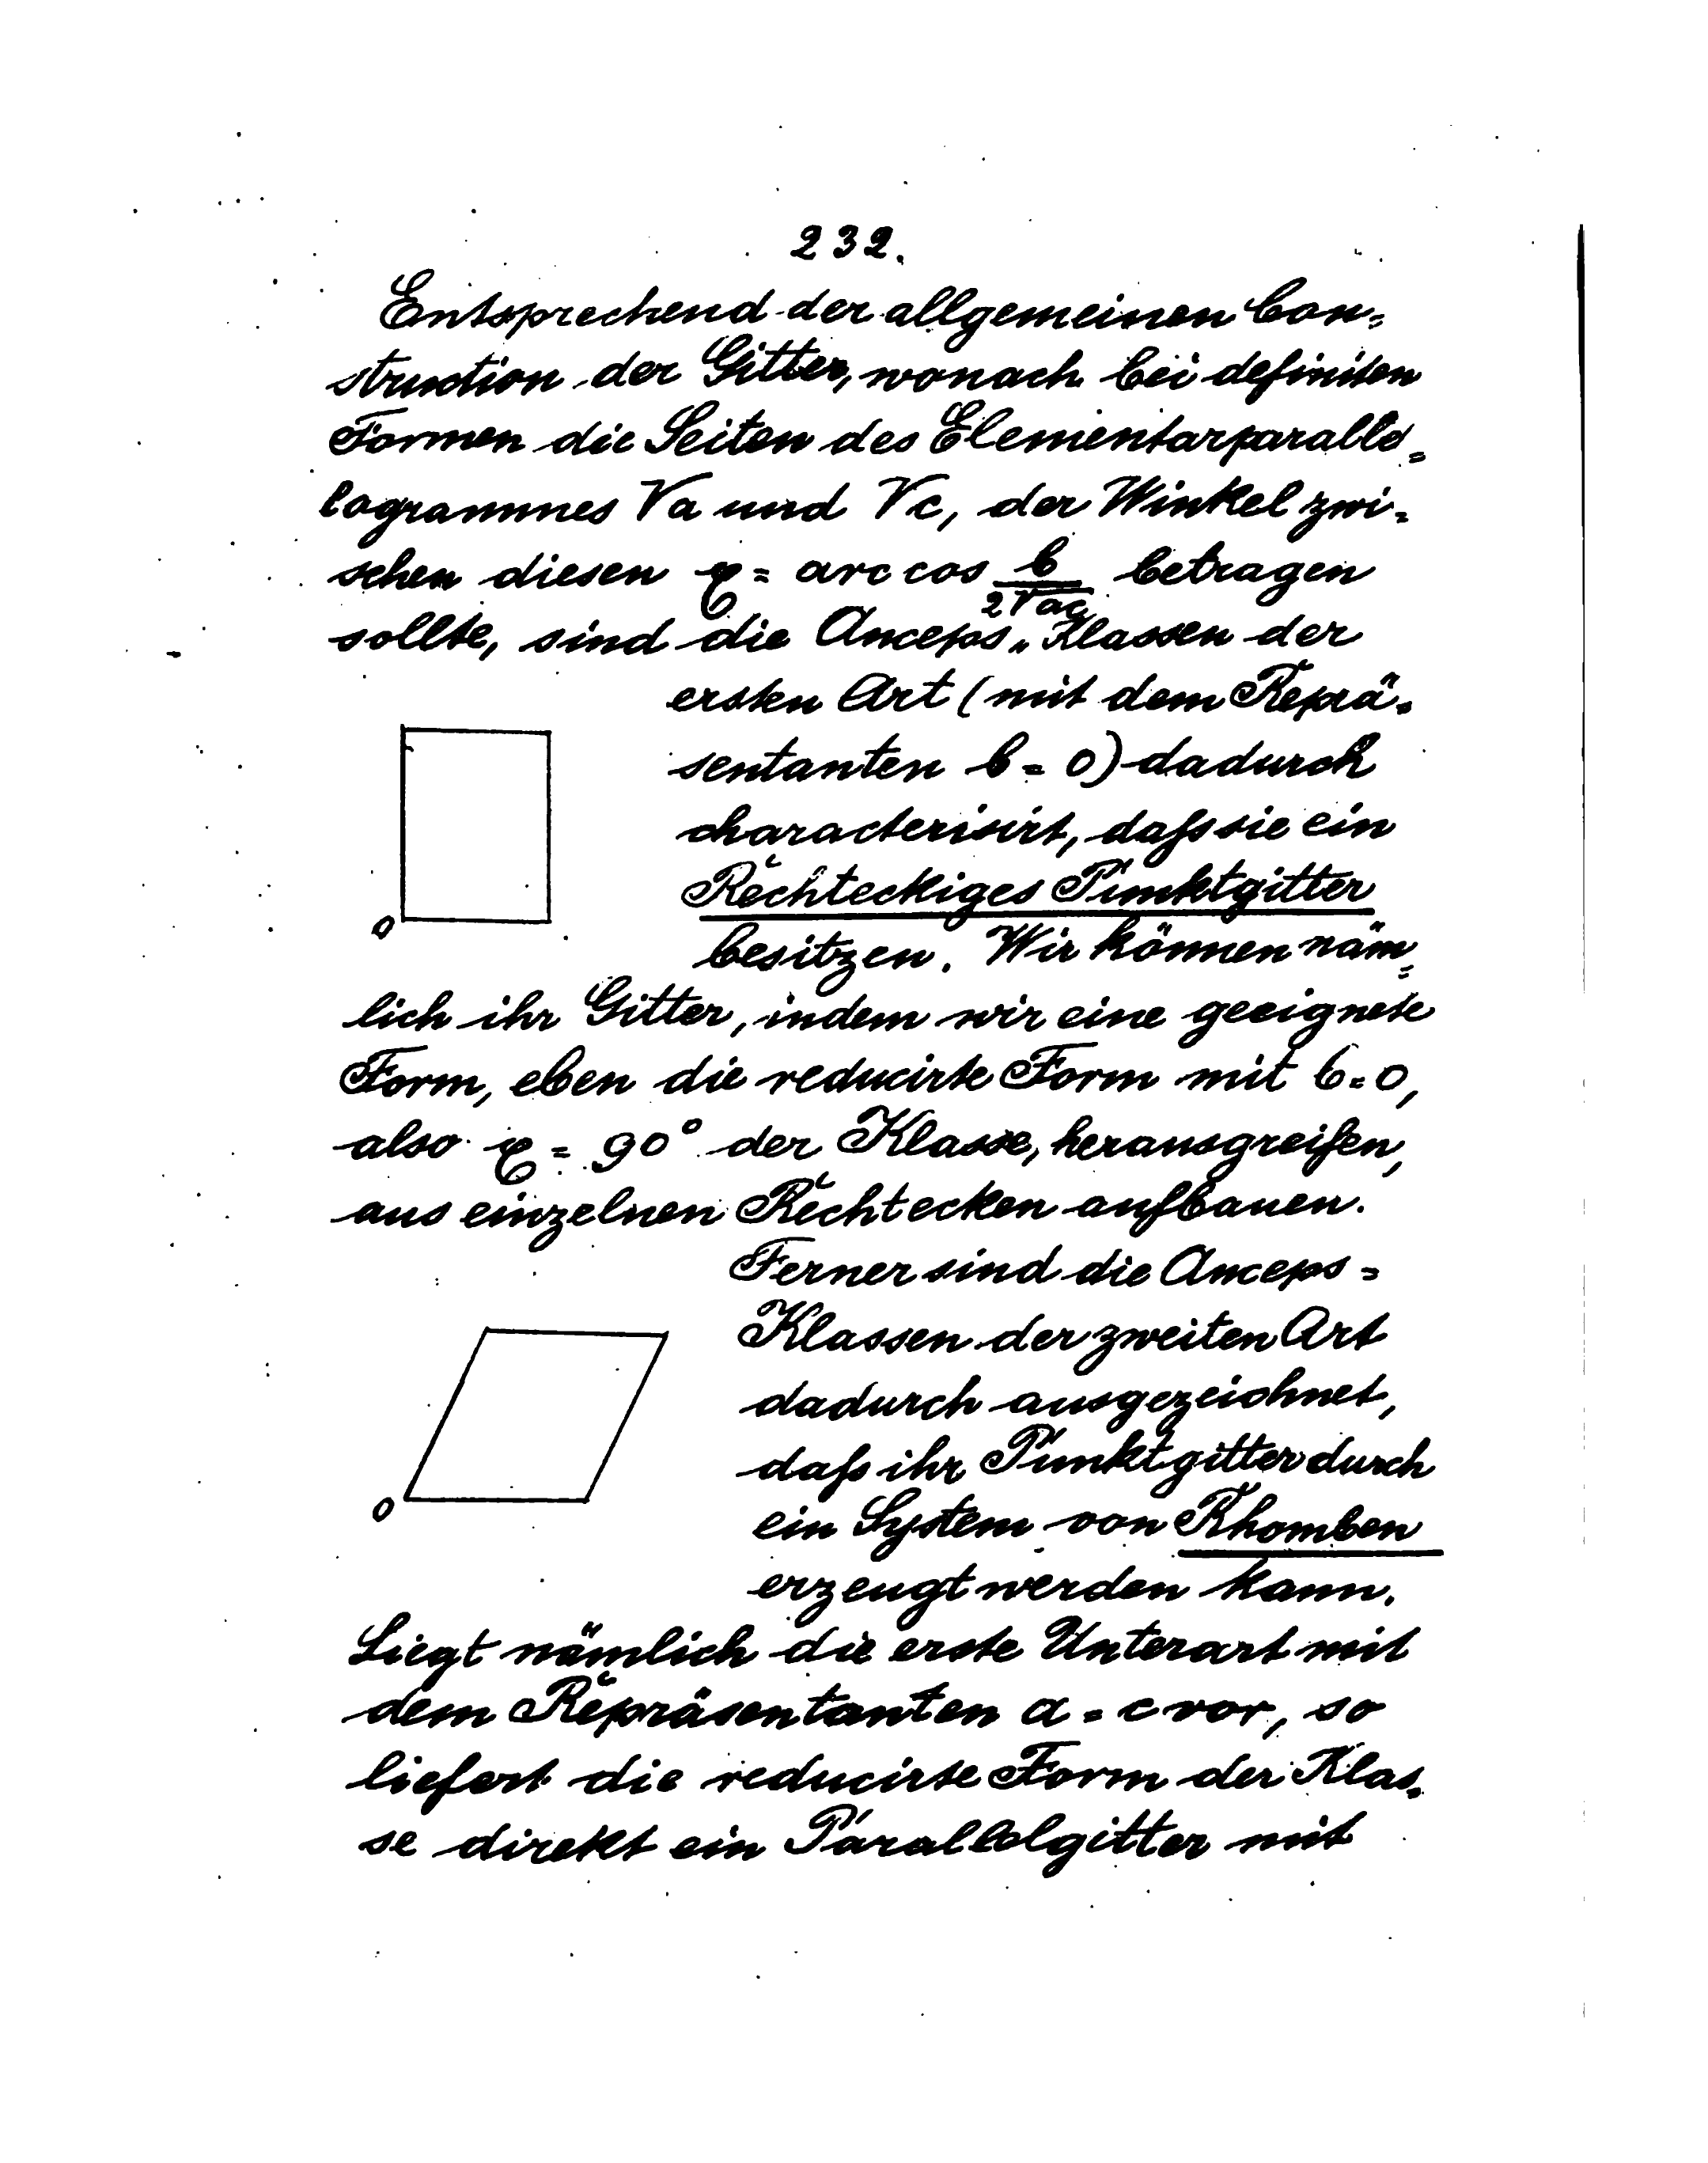 232.
Entsprechend der allgemeinen Con=
struction der Gitter, wonach bei definiten
Formen die Seiten des Elementarparalle=
logrammes √a und √c, der Winkel zwi=
schen diesen φ = arc cos b/2√ac betragen
sollte, sind die Anceps=Klassen der
ersten Art (mit dem Reprä=
sentanten b = 0) dadurch
characterisirt, daſs sie ein
Rechteckiges Punktgitter
0
besitzen. Wir können näm=
lich ihr Gitter, indem wir eine geeignete
Form, eben die reducirte Form mit b=0,
also φ = 90° der Klasse, herausgreifen,
aus einzelnen Rechtecken aufbauen.
Ferner sind die Anceps=
Klassen der zweiten Art
dadurch ausgezeichnet,
daſs ihr Punktgitter durch
0
ein System von Rhomben
erzeugt werden kann.
Liegt nämlich die erste Unterart mit
dem Repräsentanten a = c vor, so
liefert die reducirte Form der Klas=
se direkt ein Parallelgitter mit